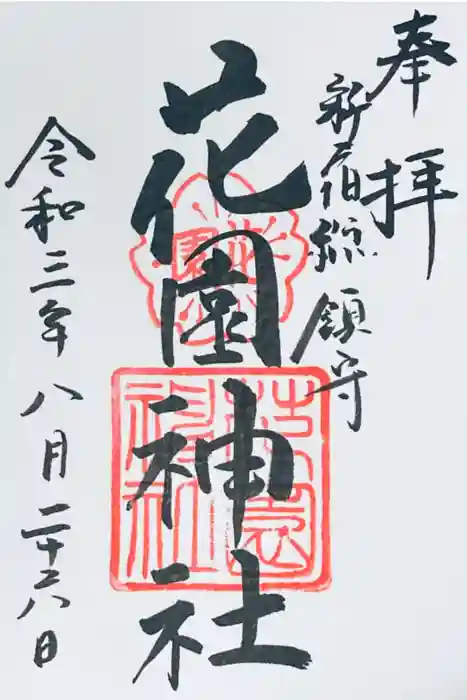 奉拝
新宿総鎮守
花園神社
令和三年八月二十六日